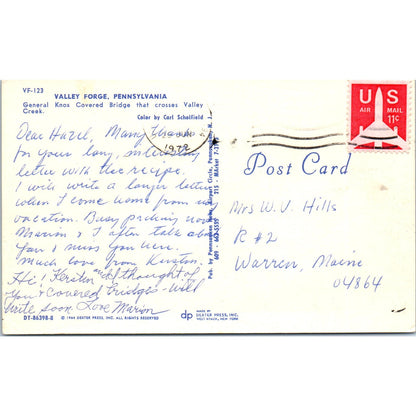 VF-123
VALLEY FORGE, PENNSYLVANIA
General Knox Covered Bridge that crosses Valley
Creek.
Color by Carl Scheifield
Dear Hazel, Many thanks
for your long, interesting
letter with the recipe.
I will write a longer letter
when I come home from my
vacation. Busy packing now
Marion & I often talk about
you & miss you here.
Much love from Kerstin.
Hi! Kerstin and I thought of
you & covered bridges - Will
write soon. Love Marion
DT-86398-B
© 1966 DEXTER PRESS, INC. ALL RIGHTS RESERVED
1972
Post Card
US
AIR MAIL
11c
Mrs W. V. Hills
R #2
Warren, Maine
04864
dp
MADE BY
DEXTER PRESS, INC.
WEST NYACK, NEW YORK